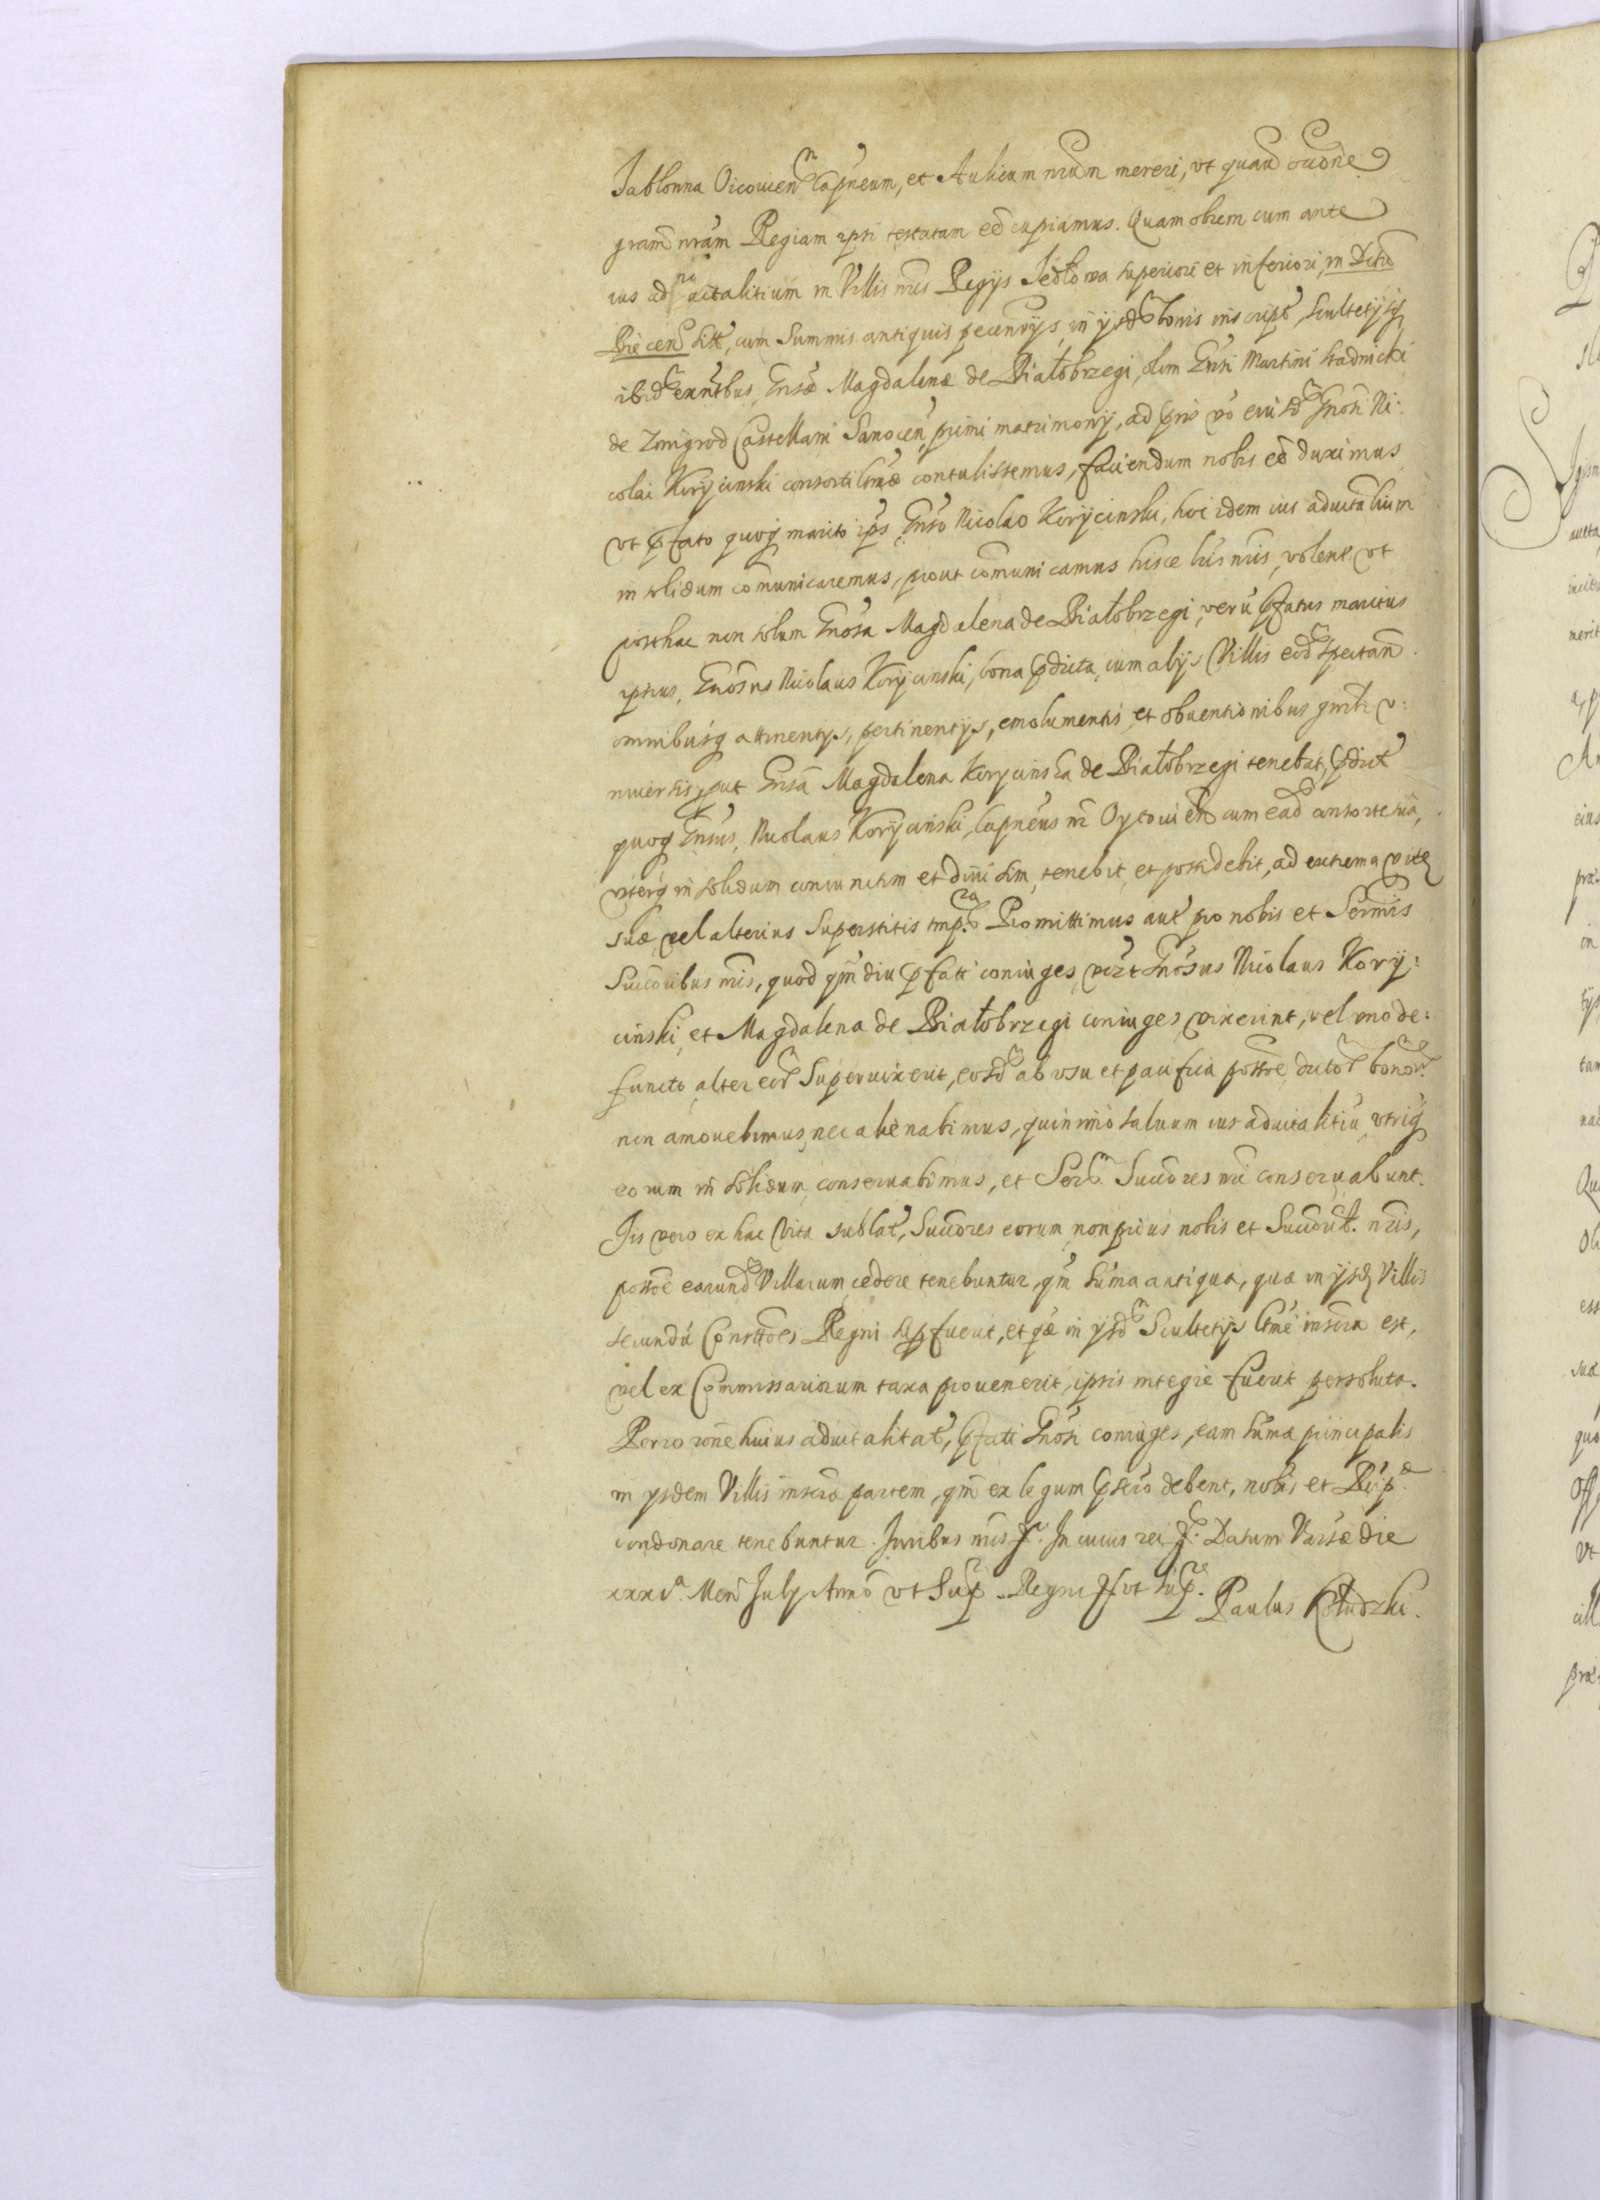 Jablonna Oicouien Capneum, et Aulicum nrum mereri, vt quavis occone
gram nram Regiam ipsi testatam eē cupiamus. Quam obrem cum ante
ius aduitalitium in Villis nris Regijs Jedłowa superiori et inferiori, in Dictū
Biecen sitt, cum Summis antiquis pecunijs, in ijsd bonis inscript, Scultetijsq
ibid exntibus, Gnsæ Magdalenæ de Białobrzegi, olim Gnsi Martini Stadnicki
de Zmigrod Castellani Sanocen, primi matrimonij, ad pns vo eiusd Gnosi Ni:
colai Korycinski consorti ltmæ contulissemus, faciendum nobis eē duximus
vt pfato quoq marito ips Gnso Nicolao Korycinski, hoc idem ius aduitalium
in solidum comunicaremus, prout comunicamus hisce lris nris, volent vt
posthac non solum Gnosa Magdalena de Białobrzegi, verū pfatus maritus
ipsius, Gnosus Nicolaus Korycinski, bona pdicta, cum alijs Villis eod spectan
omnibusq attinentijs, pertinentijs, emolumentis, et obuentionibus gnrlr v:
niuersis, put Gnsa Magdalena Korycinska de Białobrzegi tenebat, pdict
quoq Gnsus, Nicolaus Korycinski, Capneus nr Oycouien cum ead consorte sua,
vterq in solidum coniunctim et diuisim, tenebit, et possidebit, ad extrema vitę
suæ, vel alterius superstitis tmpora. Promittimus aut pro nobis et Sermis
Succoribus nris, quod qmdiu pfati coniuges, vizt Gnosus Nicolaus Kory:
cinski, et Magdalena de Białobrzegi coniuges vixerint, vel vno de:
functo, alter eor Superuixerit, eosd ab vsu et paufica possōe dictor bonor.
non amouebimus, nec alienabimus, quinimo saluum ius aduitalitiū, vtriq
eorum in solidum conseruabimus, et Sermi Succores nri conseruabunt.
Iis vero ex hac vita sublat, Succores eorum, non prius nobis et Succorib. nris,
possōe earund Villarum cedere tenebuntur, qm suma antiqua, quæ in ijsd Villis
secundū Constitōes Regni fuerit, et qæ in ijsd Scultetijs ltme inscra est,
vel ex Commissariorum taxa prouenerit, ipsis integre fuerit persoluta.
Porro rōne huius aduitalitat, pfati Gnosi coniuges, eam sumæ principalis
in ijsdem Villis inscræ partem, qm ex legum pscro debent, nobis et Reip.
condonare tenebuntur. Iuribus nris &. In cuius rei &. Datum Varsæ die
xxxi.a Men Julij Anno vt Sup. Regni & vt Sup. Paulus Kołudzki.